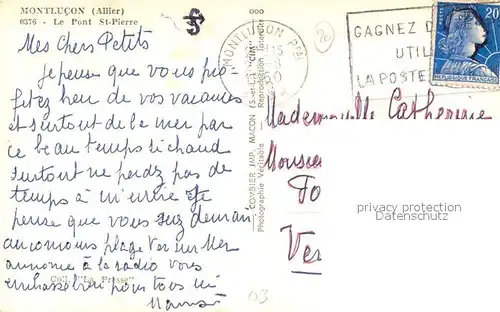 MONTLUÇON (Allier)
0376 - Le Pont St-Pierre
Mes Chers Petits
Je pense que vous pro-
fitez bien de vos vacances
et surtout de la mer par
ce beau temps si chaud
surtout ne perdez pas de
temps à m'écrire Je
pense que vous
au concours plage Ver sur Mer
annonce à la radio vous
embrasse bien pour tous
Maman
Coll. "La Presse"
COMBIER IMP. MACON (S.-et-L.)
Photographie Véritable - Reproduction Interdite
MONTLUÇON PPAL
GAGNEZ D
UTIL
LA POSTE
20
REPUBLIQUE FRANÇAISE
Mademoiselle Catherine
Monsieur
Ver
privacy protection
Datenschutz
03